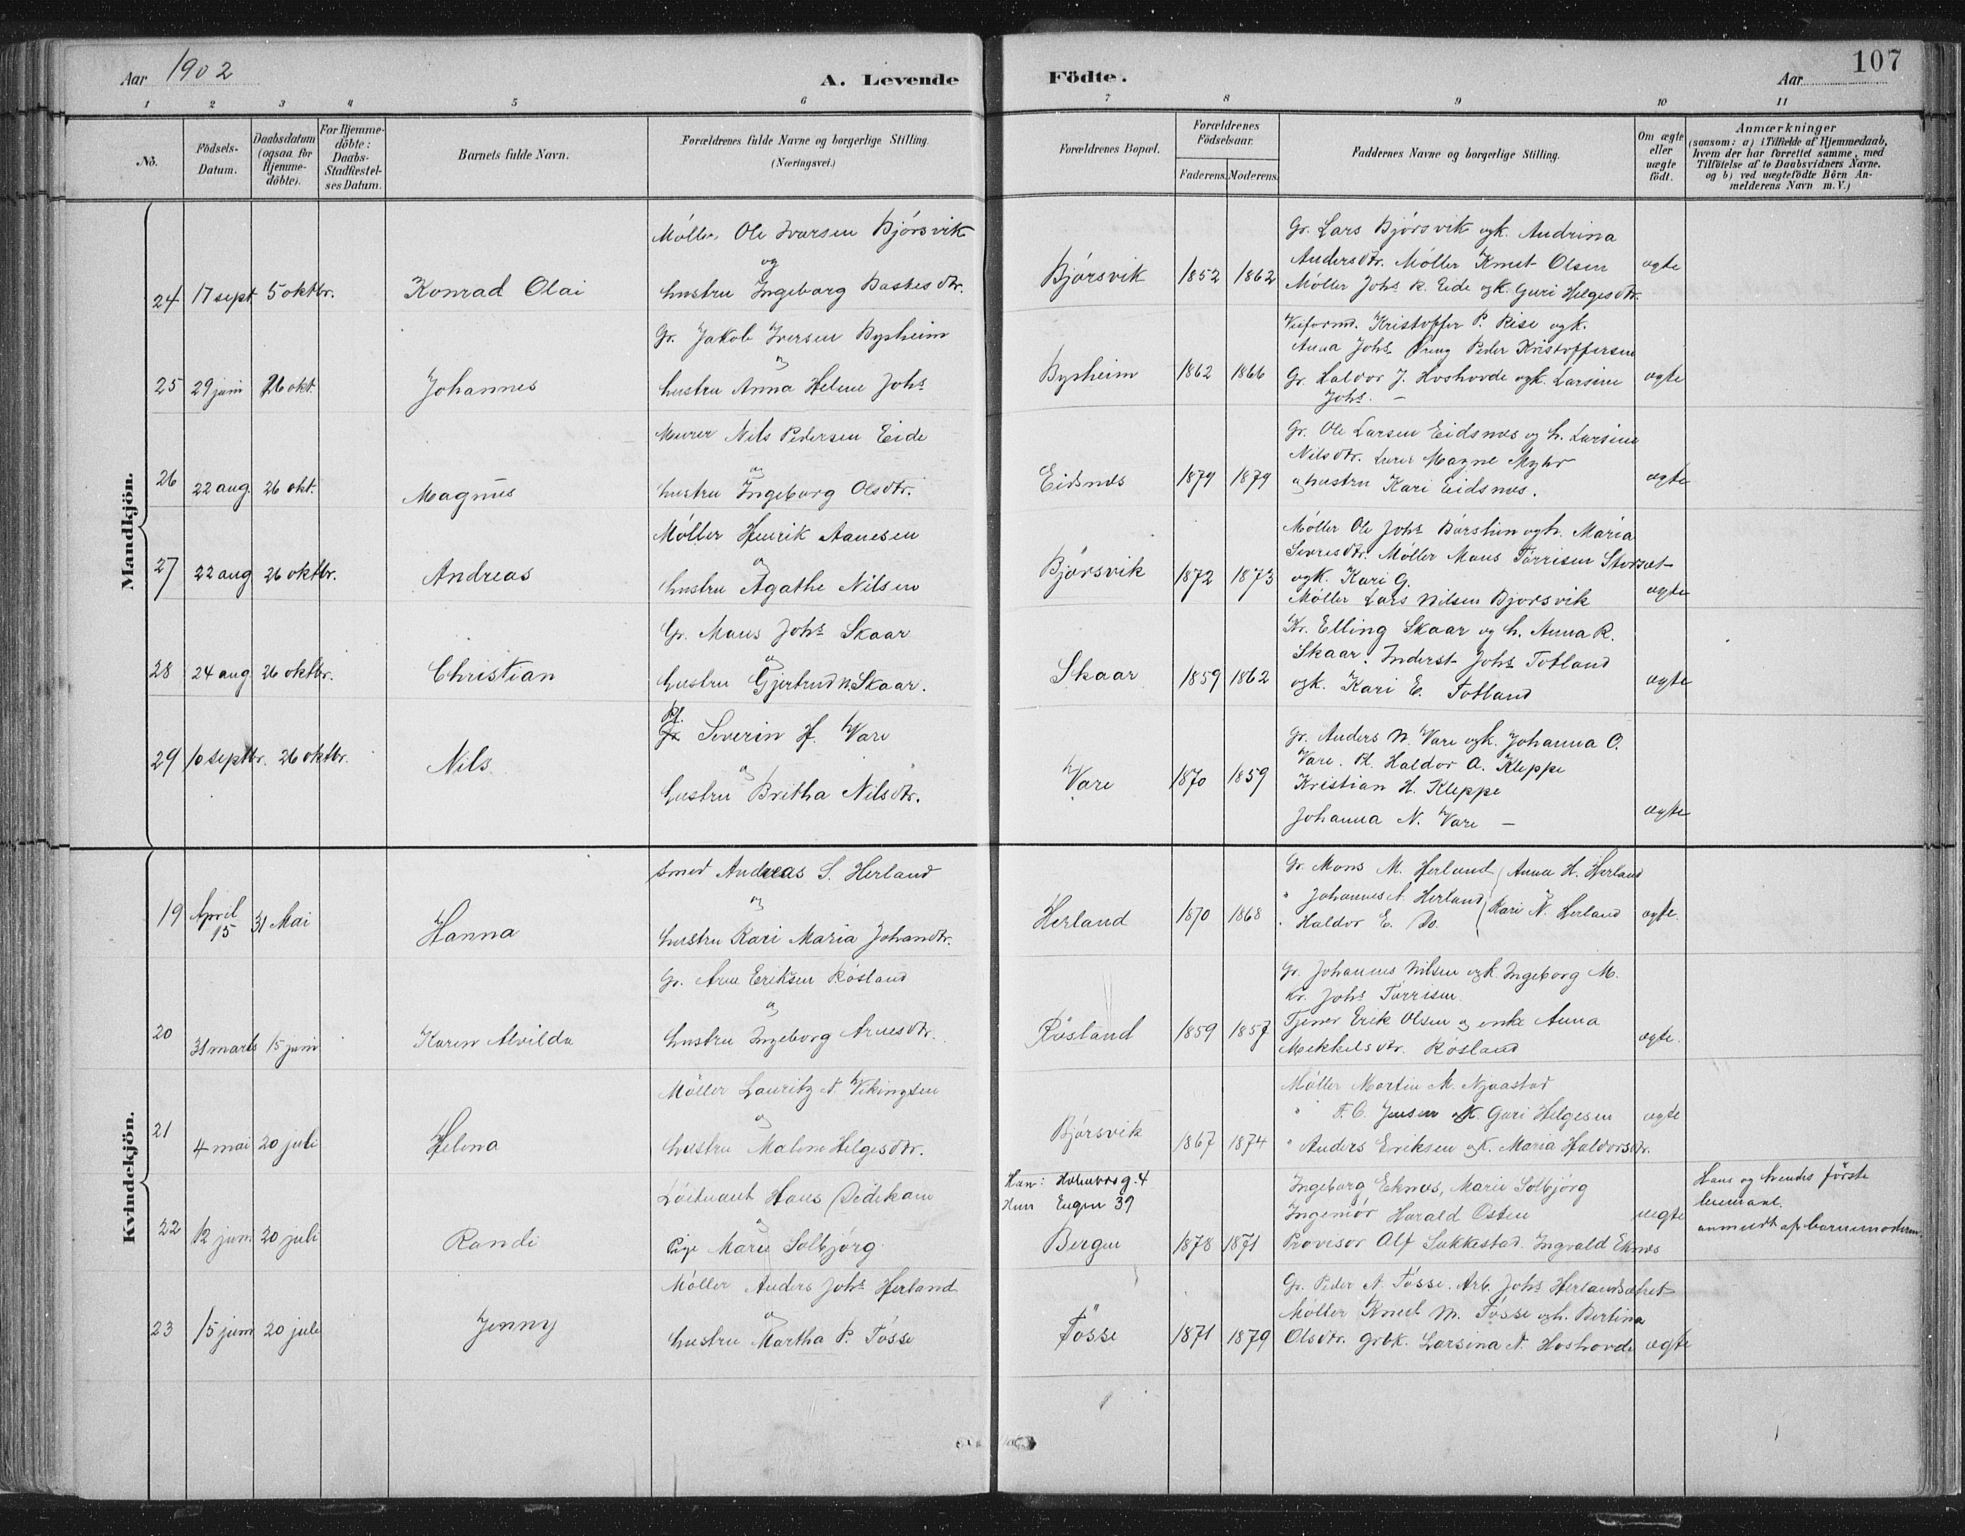 Aar 1902
A. Levende
Födte.
Aar
107
1 2 3 4 5 6 7 8 9 10 11
No.
Födsels-Datum.
Daabsdatum (ogsaa for Hjemme-döbte).
For Hjemme-döbte: Daabs-Stadfæstel-ses Datum.
Barnets fulde Navn.
Forældrenes fulde Navne og borgerlige Stilling. (Næringsvei.)
Forældrenes Bopæl.
Forældrenes Födselsaar.
Faderens.
Moderens.
Faddernes Navne og borgerlige Stilling.
Om ægte eller uægte födt.
Anmærkninger
(saasom: a) i Tilfælde af Hjemmedaab,
hvem der har forrettet samme, med
Tilföielse af to Daabsvidners Navne,
og b) ved uægtefödte Börn An-
melderens Navn m. V.)
Mandkjön.
24 17 sept 5 oktbr. Konrad Olai
Møller Ole Iversen Bjørsvik
og
hustru Ingeborg Bastesdtr.
Bjørsvik 1852 1862
Gr. Lars Bjørsvik ogk. Andrina
Andersdtr. Møller Knut Olsen
Møller Johs R. Eide ogk. Guri Helgesdtr.
ægte
25 29 juni 26 okt. Johannes
Gr. Jakob Iversen Bysheim
og
hustru Anna Helene Johs
Bysheim 1862 1866
Kristoffer P. Rise ogk.
Anna Johs Peder Kristoffersen
Gr. Haldor J. Hoshovde ogk. Larsine
Johs. –
ægte
26 22 aug. 26 okt. Magnus
Murer Nils Pedersen Eide
og
hustru Ingeborg Olsdtr.
Eidsnes 1879 1879
Gr. Ole Larsen Eidsnes og h. Larsine
Nilsdtr. Lærer Magne Myhr
og hustru Kari Eidsnes.
ægte
27 22 aug 26 oktbr. Andreas
Møller Henrik Aanesen
og
hustru Agathe Nilsen
Bjørsvik 1872 1873
Møller Ole Johs ogh. Maria
Møller Mons Torrisen Storsæt
ogk. Kari G.
Møller Lars Nilsen Bjørsvik
ægte
28 24 aug 26 oktbr. Christian
Gr. Mons Johs Skaar
og
hustru Gjertrud N. Skaar.
Skaar 1859 1862
Kr. Elling Skaar og h. Anna R.
Skaar. Inderst Johs Totland
ogk. Kari E. Totland
ægte
29 10 septbr. 26 oktbr. Nils
Pl.
Gr. Severin H. Vare
og
hustru Britha Nilsdtr.
Vare 1870 1859
Gr. Anders N. Vare ogk. Johanna O.
Vare. Pl. Haldor A. Kleppe
Kristian H. Kleppe
Johanna N. Vare –
ægte
Kvindekjön.
19 April 15 31 Mai Hanna
Smed Andreas S. Herland
og
hustru Kari Maria Johandtr.
Herland 1870 1868
Gr. Mons M. Herland ( Anna H. Herland
" Johannes A. Herland ( Kari N. Herland
" Haldor E. Do.
ægte.
20 31 marts 15 juni Karen Alvilda
Gr. Arne Eriksen Røsland
og
hustru Ingeborg Arnesdtr.
Røsland 1859 1857
Gr. Johannes Nilsen ogk. Ingeborg M.
Kr. Johs Torrisen
Tjener Erik Olsen og enke Anna
Mekkelsdtr. Røsland
ægte.
21 4 mai 20 juli Helena
Møller Lauritz A. Vikingsen
og
hustru Malene Helgesdtr.
Bjørsvik 1867 1874
Møller Martin M. Njaastad
" F. C. Jensen ogk. Guri Helgesen
" Anders Eriksen ogk. Maria Haldorsdtr.
ægte
22 12 juni 20 juli Randi
Löitnant Hans Didikam
og
Pige Marie Solbjørg
Han: Holbergsg. 4
Hun Engen 39
Bergen 1878 1871
Ingeborg Eknes, Marie Solbjörg
Ingeniør Harald Osten
Provisor Alf Sukkestad. Ingvald Eknes
uegte
Hans og hendes förste
leiermaal.
anmeldt af barnemoderen.
23 15 juni 20 juli Jenny
Møller Anders Johs Herland
og
hustru Martha P. Tøsse
Tøsse 1871 1879
Gr. Peder A. Tøsse. Arb. Johs Herlandsæhet
Møller Knut M. Tøsse ogh. Bertina
Olsdtr. Grbk. Larsina A. Hoshovde
ægte